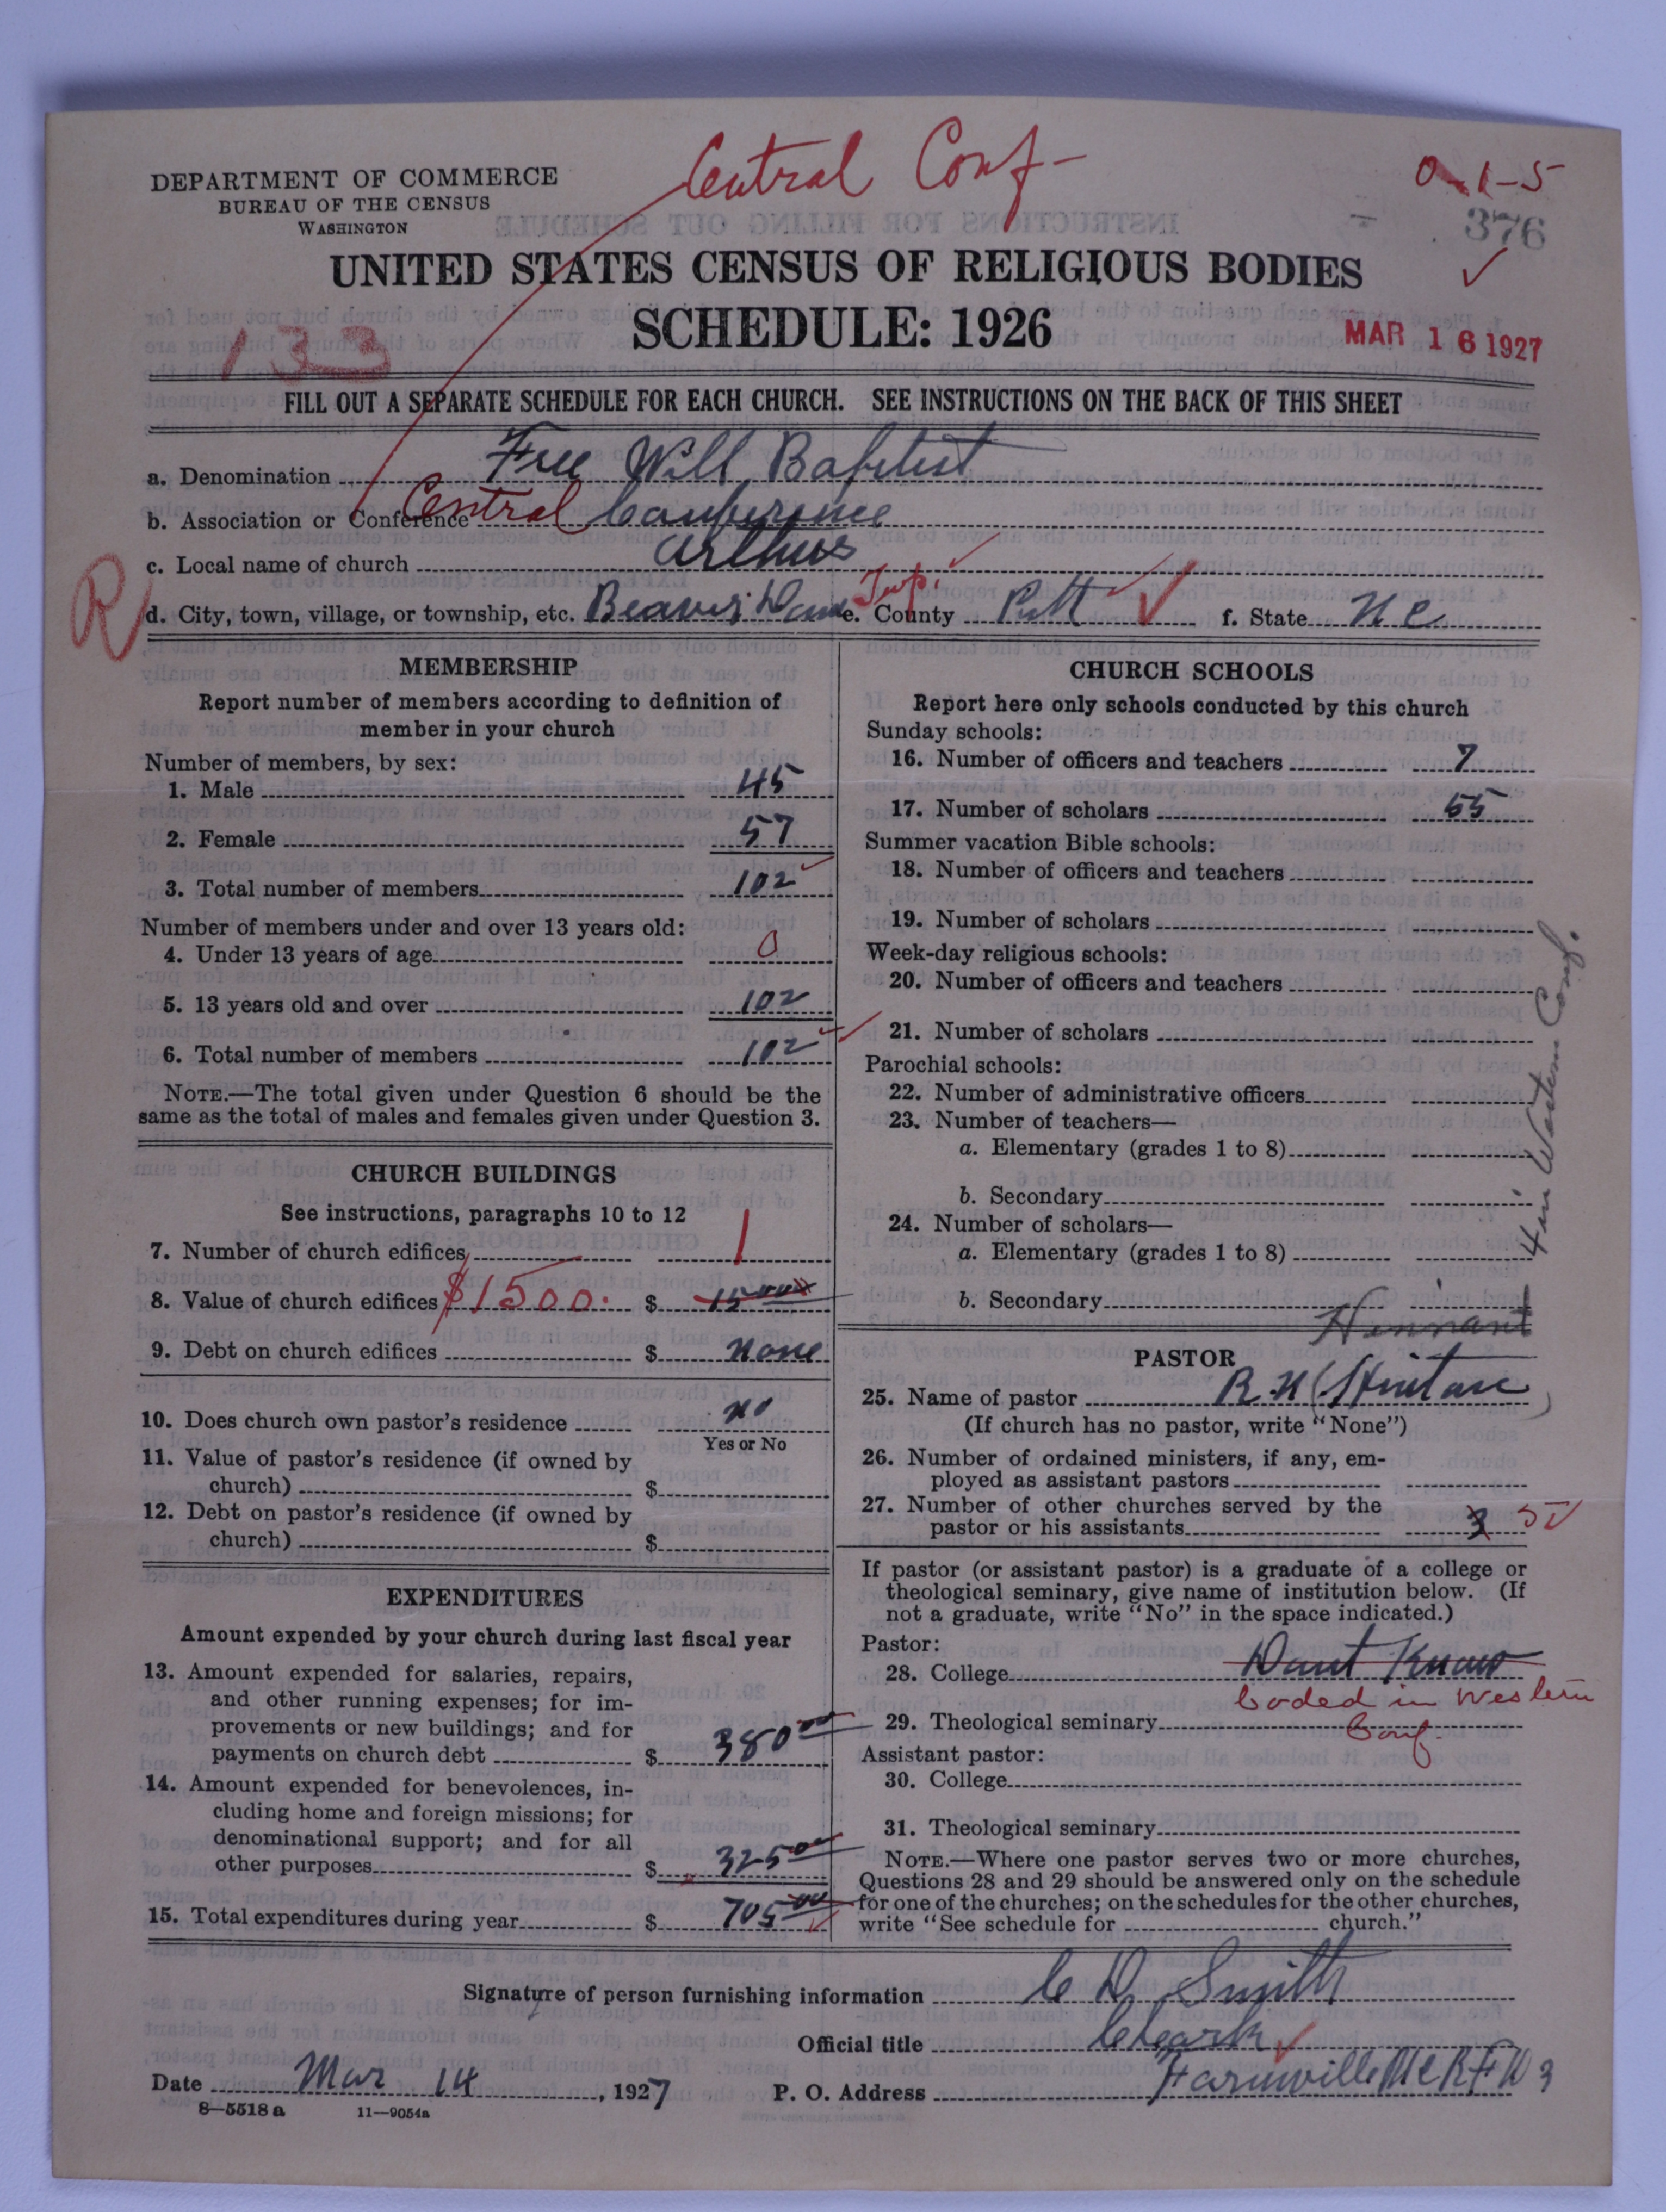 Central Conf-
0-1-5
DEPARTMENT OF COMMERCE
BUREAU OF THE CENSUS
WASHINGTON
376
UNITED STATES CENSUS OF RELIGIOUS BODIES
SCHEDULE: 1926
133
MAR 16 1927
FILL OUT A SEPARATE SCHEDULE FOR EACH CHURCH. SEE INSTRUCTIONS ON THE BACK OF THIS SHEET
a. Denomination Free Will Baptist
b. Association or Conference Central Conference
c. Local name of church Arthur
R
d. City, town, village, or township, etc. Beaver Dam Twp. e. County Pitt f. State N C
MEMBERSHIP
Report number of members according to definition of
member in your church
Number of members, by sex:
1. Male 45
2. Female 57
3. Total number of members 102
Number of members under and over 13 years old:
4. Under 13 years of age 0
5. 13 years old and over 102
6. Total number of members 102
NOTE.—The total given under Question 6 should be the
same as the total of males and females given under Question 3.
CHURCH BUILDINGS
See instructions, paragraphs 10 to 12
7. Number of church edifices 1
8. Value of church edifices $1500. $ 1500
9. Debt on church edifices $ None
10. Does church own pastor's residence no
Yes or No
11. Value of pastor's residence (if owned by
church) $
12. Debt on pastor's residence (if owned by
church) $
EXPENDITURES
Amount expended by your church during last fiscal year
13. Amount expended for salaries, repairs,
and other running expenses; for im-
provements or new buildings; and for
payments on church debt $ 380 00
14. Amount expended for benevolences, in-
cluding home and foreign missions; for
denominational support; and for all
other purposes $ 325 00
15. Total expenditures during year $ 705 00
CHURCH SCHOOLS
Report here only schools conducted by this church
Sunday schools:
16. Number of officers and teachers 7
17. Number of scholars 55
Summer vacation Bible schools:
18. Number of officers and teachers
19. Number of scholars
Week-day religious schools:
20. Number of officers and teachers
21. Number of scholars
Parochial schools:
22. Number of administrative officers
23. Number of teachers—
a. Elementary (grades 1 to 8)
b. Secondary
24. Number of scholars—
a. Elementary (grades 1 to 8)
b. Secondary
4 in Western Conf.
Hennant
PASTOR
25. Name of pastor R. N
(If church has no pastor, write "None")
26. Number of ordained ministers, if any, em-
ployed as assistant pastors
27. Number of other churches served by the
pastor or his assistants 3 5
If pastor (or assistant pastor) is a graduate of a college or
theological seminary, give name of institution below. (If
not a graduate, write "No" in the space indicated.)
Pastor:
28. College Dont Know
Coded in Western
29. Theological seminary Conf.
Assistant pastor:
30. College
31. Theological seminary
NOTE.—Where one pastor serves two or more churches,
Questions 28 and 29 should be answered only on the schedule
for one of the churches; on the schedules for the other churches,
write "See schedule for church."
Signature of person furnishing information C D Smith
Official title Cleark
Date Mar 14, 1927 P. O. Address Farmville NC RFD 3
8—5518 a 11—9054a